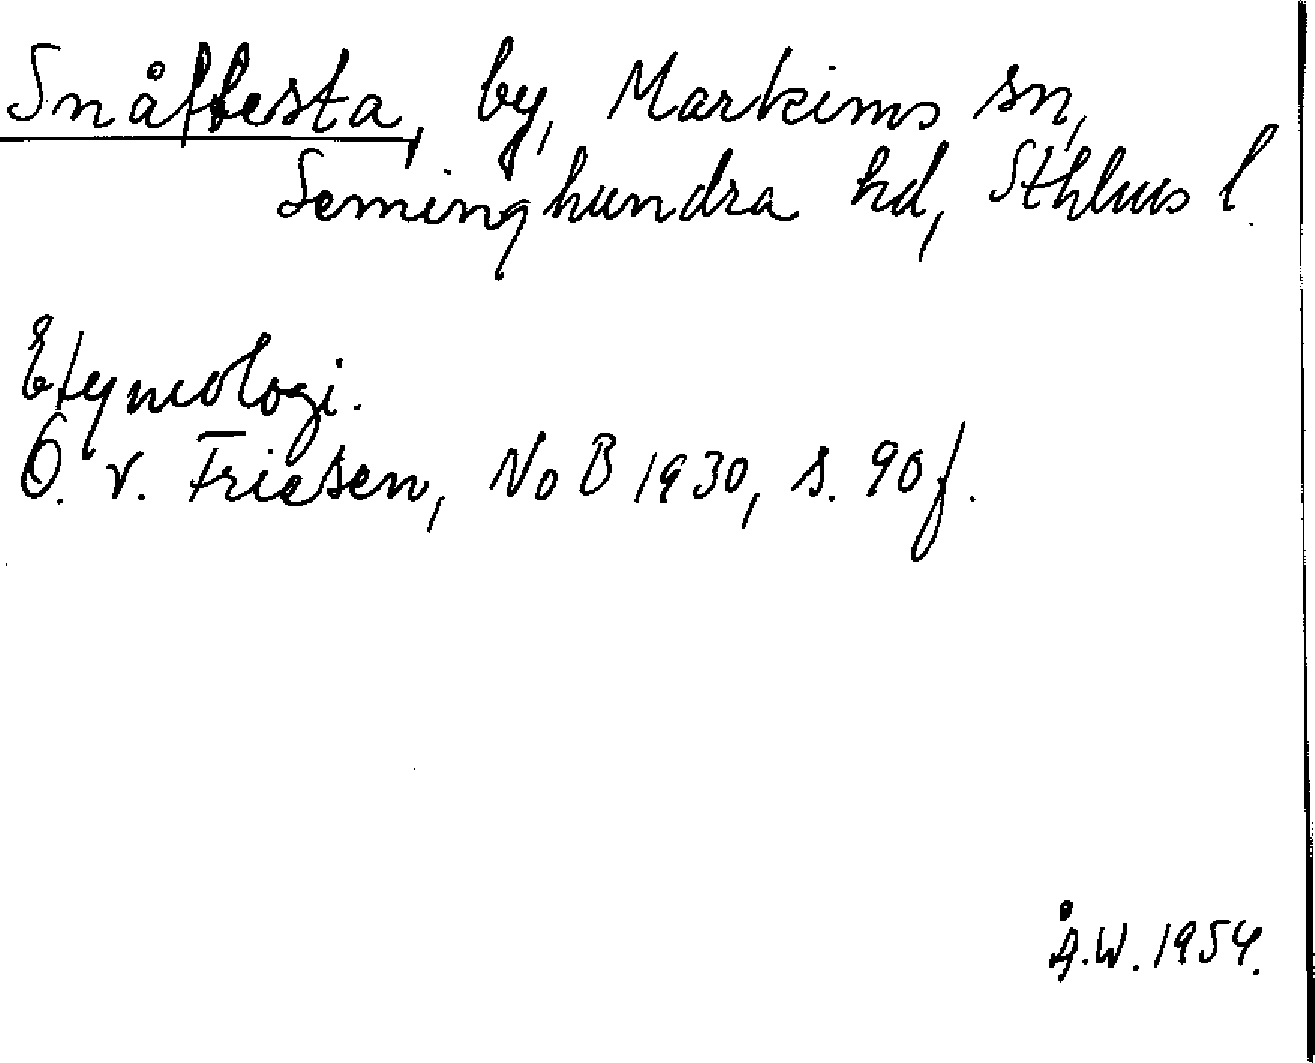 by, Markims sn,
Seminghundra hd, Sthlms l.
Etymologi.
O. v. Friesen, NoB 1930, s. 90 f.
Å.W. 1954.